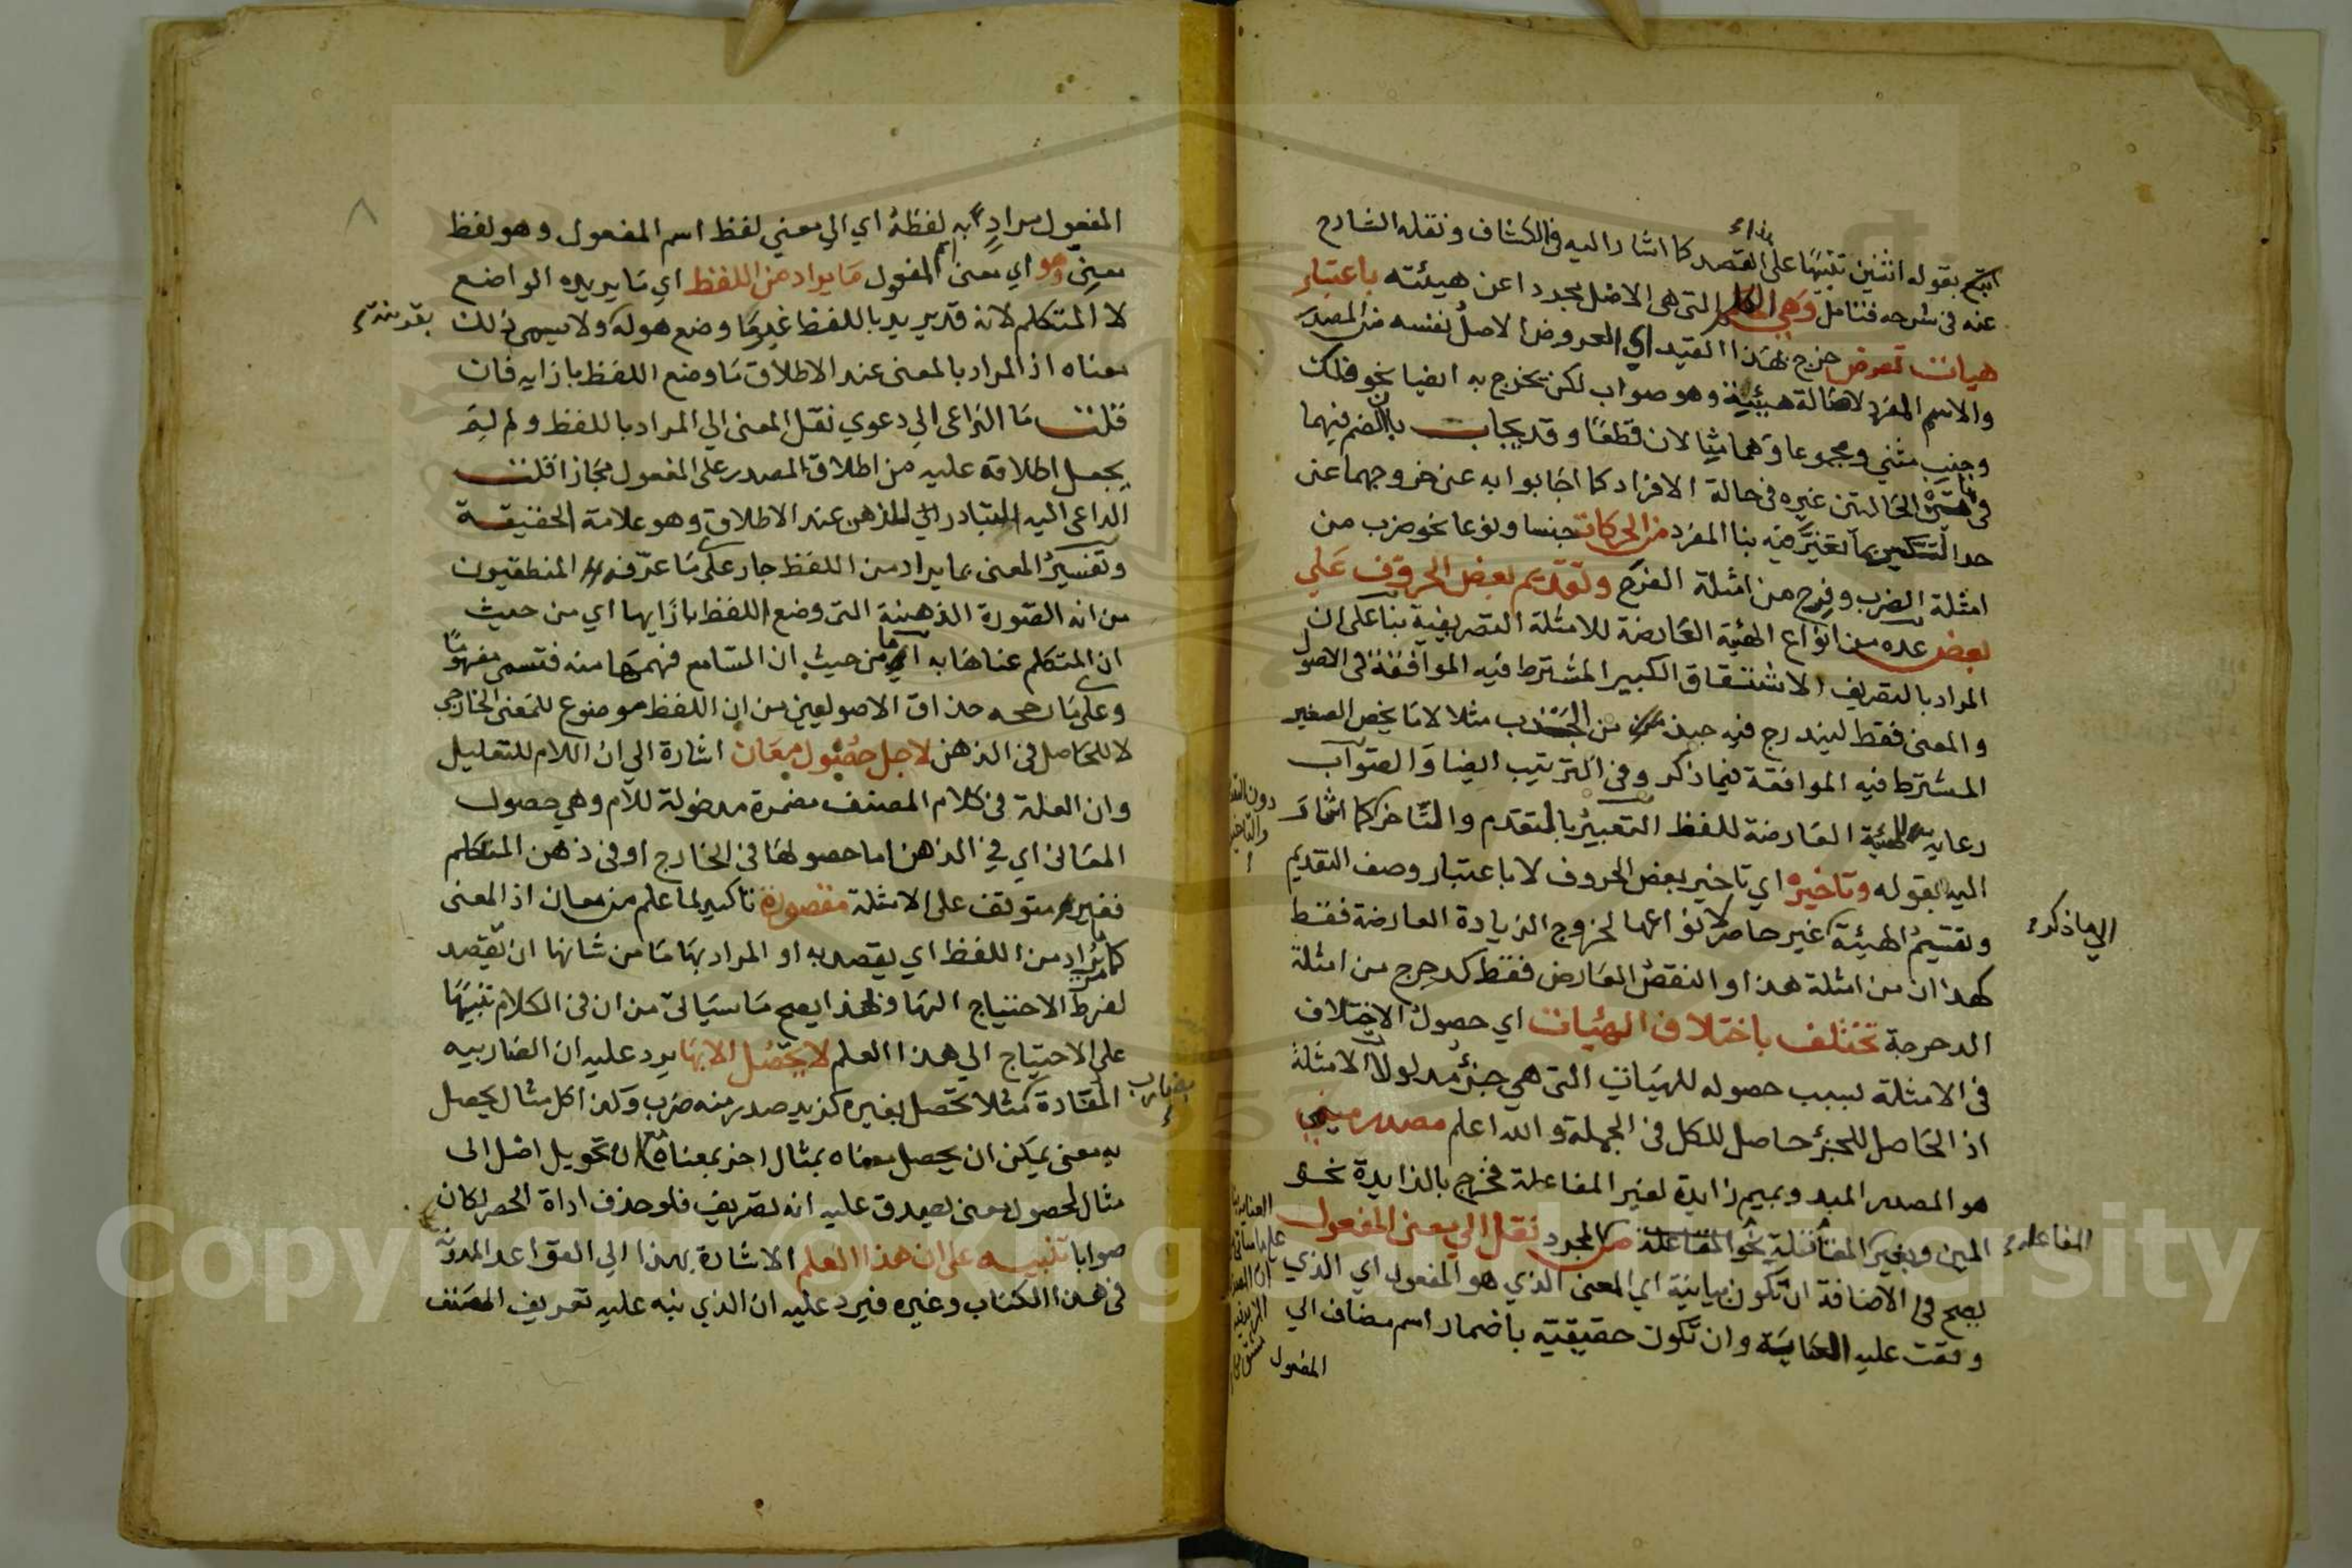 بقوله اثنين تنبيها على القصد كما اشار اليه في الكشاف ونقله الشارح
عنه في شرحه فتامل وهي الكلم التي هي الاصل مجردا عن هيئته باعتبار
هيات تعرض خرج بهذا القيد اي العروض الاصل نفسه من المصدر
والاسم المفرد لاصالة هيئته وهو صواب لكن يخرج به ايضا نحو فلك
وجنب مثني ومجموعا وهما مثالان قطعا وقد يجاب بان الضم فيهما
في الحالتين غيره في حالة الافراد كما اجابوا به عن خروجهما عن
حد التكسير بما تغير فيه بنا المفرد من الحركات جنسا ونوعا نحو ضرب من
امثلة الضرب وفرح من امثلة الفرح وتقديم بعض الحروف علي
بعض عده من انواع الهيئة العارضة للامثلة التصريفية بنا على ان
المراد بالتصريف الاشتقاق الكبير المشترط فيه الموافقة في الاصول
والمعنى فقط ليندرج فيه جبذ من الجذب مثلا لا ما يخص الصغير
المشترط فيه الموافقة فيما ذكر وفي الترتيب ايضا والصواب
رعاية للهيئة العارضة للفظ التعبير بالتقدم والتاخر كما اشار
اليه بقوله وتاخيره اي تاخير بعض الحروف لا باعتبار وصف التقديم
وتقسيم الهيئة غير حاصر لانواعها لخروج الزيادة العارضة فقط
كهذان من امثلة هذا والنقص العارض فقط كدحرج من امثلة
الدحرجة تختلف باختلاف الهيئات اي حصول الاختلاف
في الامثلة بسبب حصوله للهيات التي هي جزء مدلول الامثلة
اذ الحاصل للجزء حاصل للكل في الجملة والله اعلم مصدر ميمي
هو المصدر المبدو بميم زايدة لغير المفاعلة فخرج بالزايدة نحو
المين وبغير المفاعلة نحو المقاتلة من المجرد نقل الي معنى المفعول
يصح في الاضافة ان تكون بيانية اي المعنى الذي هو المفعول اي الذي
وقعت عليه العناية وان تكون حقيقية باضمار اسم مضاف الي
المفعول
الي ما ذكر
المفاعلة
المفعول مراد به لفظه اي الي معني لفظ اسم المفعول وهو لفظ
معني وهو اي معنى المفعول ما يراد من اللفظ اي ما يريده الواضع
لا المتكلم لانه قد يريد باللفظ غير ما وضع هو له ولا يسمى ذلك
بقرينة
معناه اذ المراد بالمعنى عند الاطلاق ما وضع اللفظ بازايه فان
قلت ما الداعي الي دعوي نقل المعنى الي المراد باللفظ ولم لم
يجعل اطلاقه عليه من اطلاق المصدر على المفعول مجازا قلت
الداعي اليه التبادر الي الذهن عند الاطلاق وهو علامة الحقيقة
وتفسير المعنى بما يراد من اللفظ جار على ما عرفه المنطقيون
من انه الصورة الذهنية التي وضع اللفظ بازايها اي من حيث
ان المتكلم عناها به اما من حيث ان السامع فهمها منه فتسمى مفهوما
وعلى ما رجحه حذاق الاصوليين من ان اللفظ موضوع للمعنى الخارجي
لا للحاصل في الذهن لاجل حصول معان اشارة الي ان اللام للتعليل
وان العلة في كلام المصنف مضمرة مدخولة للام وهي حصول
المعاني اي في الذهن اما حصولها في الخارج او في ذهن المتكلم
فغير متوقف على الامثلة مقصودة تاكيد لما علم من معان اذ المعنى
كما مر يراد من اللفظ اي يقصد به او المراد بها ما من شانها ان تقصد
لفرط الاحتياج اليها وبهذا يصح ما سياتي من ان في الكلام تنبيها
على الاحتياج الي هذا العلم لا تحصل الا بها يرد عليه ان الضاربية
المفادة بضارب مثلا تحصل بغيره كزيد صدر منه ضرب وكذا كل مثال يحصل
به معنى يمكن ان يحصل معناه بمثال اخر بمعناه مع ان تحويل اصل الى
مثال لحصول معنى يصدق عليه انه تصريف فلو حذف اداة الحصر لكان
صوابا تنبيه على ان هذا العلم الاشارة بهذا الي القواعد المدونة
في هذا الكتاب وغيره فيرد عليه ان الذي نبه عليه تعريف المصنف
Copyright © King University